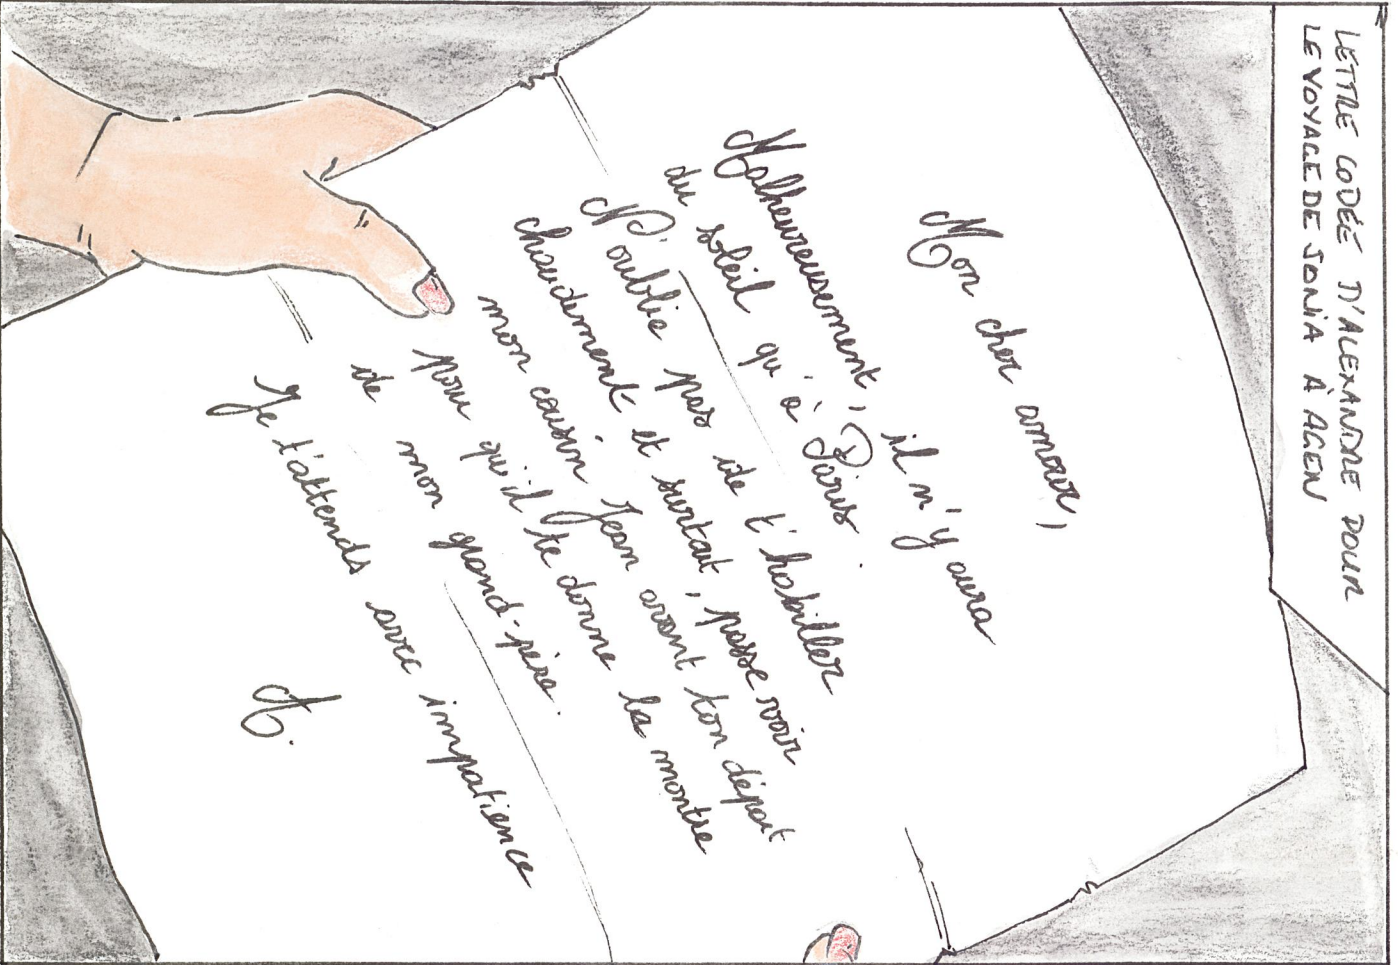 LETTRE CODÉE D'ALEXANDRE POUR
LE VOYAGE DE SONIA À AGEN
Mon cher amour,
Malheureusement, il n'y aura
du soleil qu'à Paris.
N'oublie pas de t'habiller
chaudement et surtout, passe voir
mon cousin Jean avant ton départ
pour qu'il te donne la montre
de mon grand-père.
Je t'attends avec impatience
A.